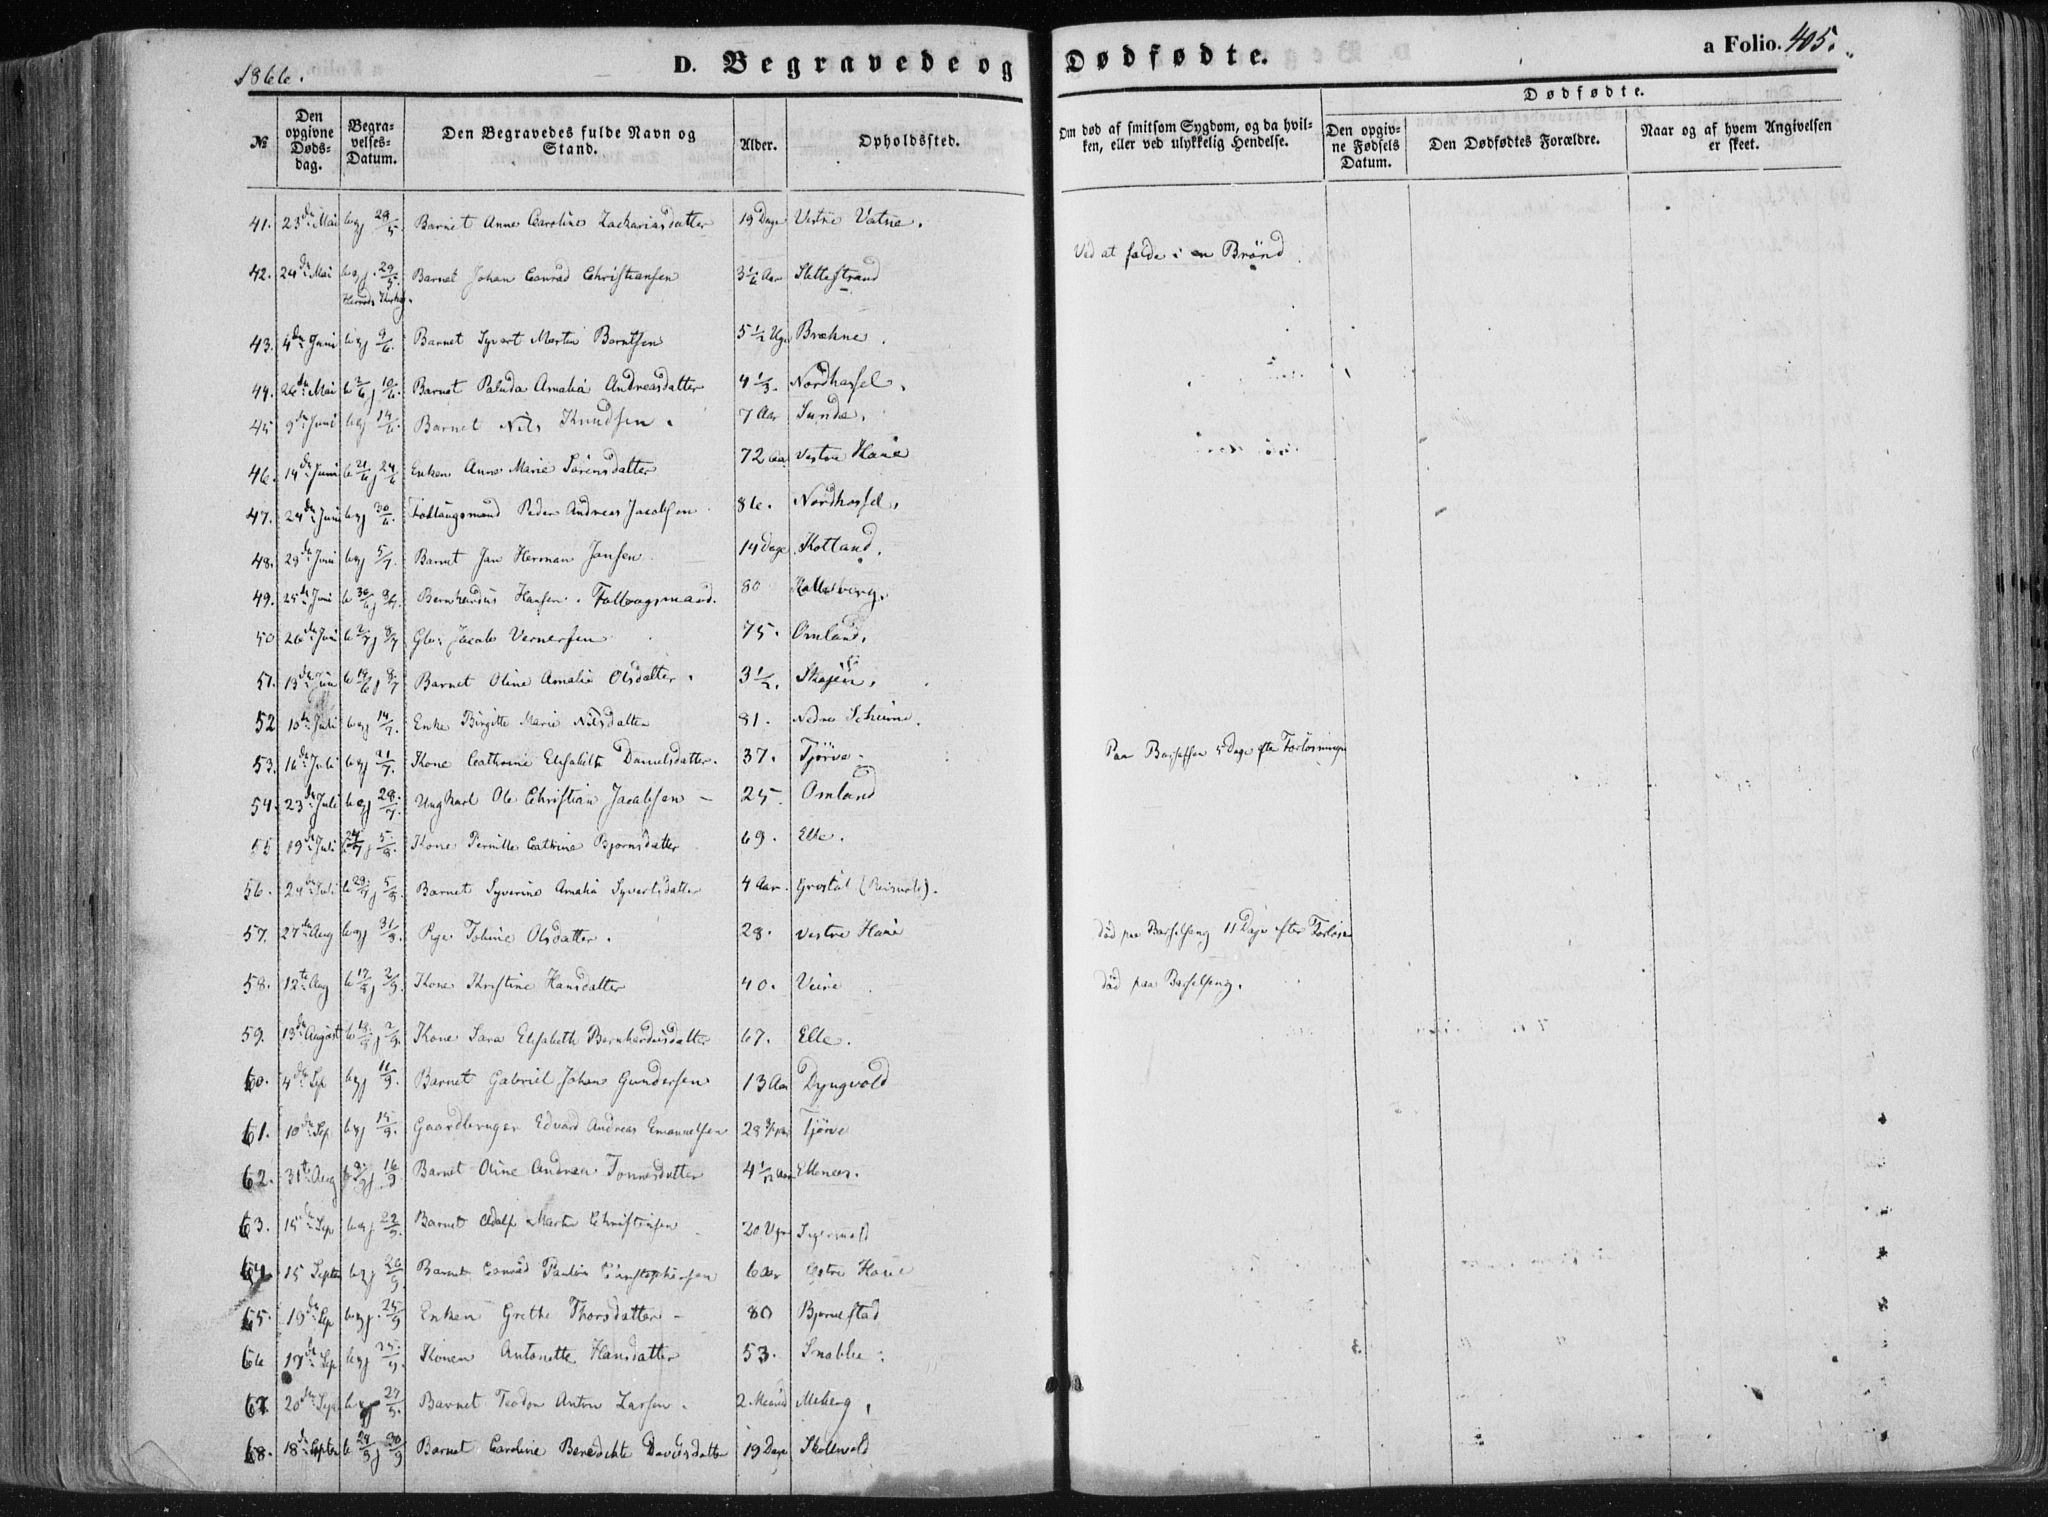 1866.
D. Begravede og Dødfødte.
a Folio. 405.
№
Den opgivne Døds-dag.
Begra-velses-Datum.
Den Begravedes fulde Navn og Stand.
Alder.
Opholdssted.
Om død af smitsom Sygdom, og da hvil-ken, eller ved ulykkelig Hendelse.
Dødfødte.
Den opgiv-ne Fødsels Datum.
Den Dødfødtes Forældre.
Naar og af hvem Angivelsen er skeet.
41. 23de Mai begj 28/5 Barnet Anne Caroline Zachariasdatter 19 Dage Vestre Vatne.
42. 24de Mai begj. 29/5 Barnet Johan Conrad Christiansen 3 1/6 Aar Slettestrand Ved at falde i en Brönd.
43. 4de Juni begj 9/6. Barnet Syvert Martin Berntsen 5 1/2 Uge Brækne.
44. 26de Mai b 2/6 j 10/6. Barnet Paluda Amalia Andreasdatter 4 1/3. Nordhassel.
45 9de Juni begj 14/6. Barnet Nils Knudsen. 7 Aar Sunde.
46. 14de Juni b 21/6 j 24/6 Enken Anne Marie Sörensdatter 72 Aar Vestre Hauie
47. 24de Juni begj 30/6. Peder Andreas Jacobsen 86. Nordhassel.
48. 28de Juni begj 5/7. Barnet Jan Herman Jansen 14 Dage Kolland.
49. 25de Juni b 30/6 j 8/7. Bernhardus Hansen. 80
50 26de Juni b 2/7 j 8/7 Jacob Vernersen 75. Omland.
51. 13de Juni b 19/6 j 8/7 Barnet Oline Amalia Olsdatter. 3 1/2.
52 10de Juli begj 14/7. Enke Birgitte Marie Nilsdatter 81. Nedre
53. 16de Juli begj 21/7. Kone Cathrine Elisabeth Danielsdatter. 37. Tjörve Paa Barselsen 5 Dage efter Forlösningen
54. 23de Juli begj 28/7 Ungkarl Ole Christian Jacobsen 25. Omland
55 19de Juli b 24/7 j 5/8. Kone Pernille Cathrine Bjornsdatter 69. Elle.
56. 24de Juli b 29/7 j 5/8 Barnet Syverine Amalia Syvertsdatter 4 Aar.
57. 27de Aug begj 31/8. Pige Tobine Olsdatter. 28. Vestre Hauie död paa Barselseng 11 Dage efter
58. 12te Aug b 17/8 j 2/9. Kone Kristine Hansdatter 40. död paa Barselseng.
59. 13de August b 18/8 j 2/9. Kone Sara Elisabeth Bernhardusdatter 67. Elle.
60. 4de Sep begj 11/9. Barnet Gabriel Johan Gundersen 13 Aar Dyngvold
61. 10de Sep begj 15/9. Gaardbruger Edvard Andreas Emanuelsen 28 Tjörve
62. 31te Aug 16/9 Barnet Oline Andrea Tonnesdatter 4 1/12 Aar Ellenes.
63. 15de Sep begj 22/9. Barnet Adolf Martin Christensen 20 Uger
64. 15 Septer begj 20/9 Barnet Conrad Paulin Christophersen 6 Aar Östre Hauie
65. 19de Sep begj. 25/9 Enken Grethe Thorsdatter 80 Bjornestad
66 17de Sep begj 25/9. Konen Antonette Hansdatter 53. Snekke.
67. 20de Sep 27/9. Barnet Teodor Anton Larsen. 2 Maaned Meberg.
68. 18de Septer b 24/9 j 30/9 Barnet Caroline Benedikte Davidsdatter 19 Dage Skollevold